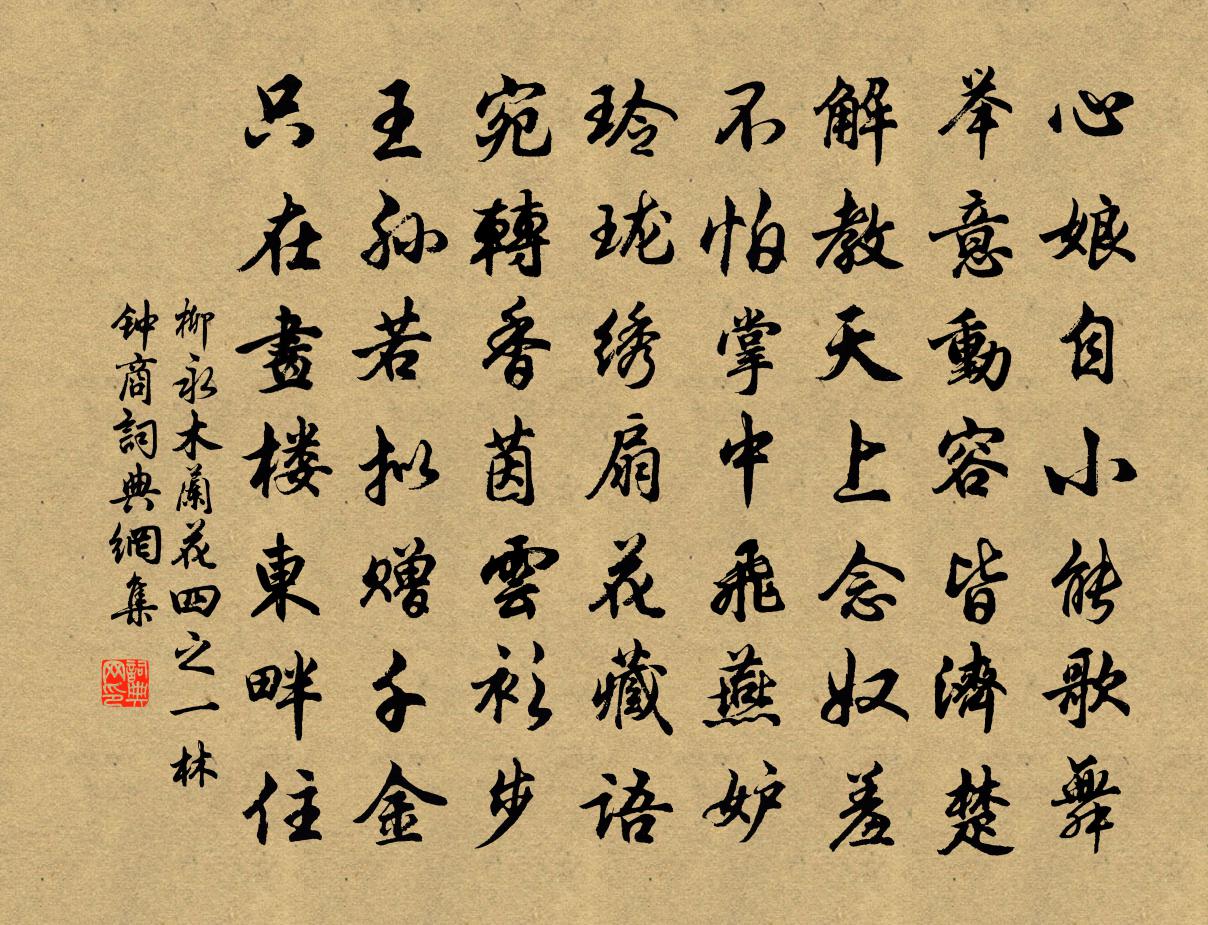 心娘自小能歌舞
举意動容皆濟楚
解教天上念奴羞
不怕掌中飛燕妒
玲珑绣扇花藏語
宛轉香茵雲衫步
王孙若拟赠千金
只在畫楼東畔住
柳永木蘭花四之一林
钟商詞典網集
詞典网印